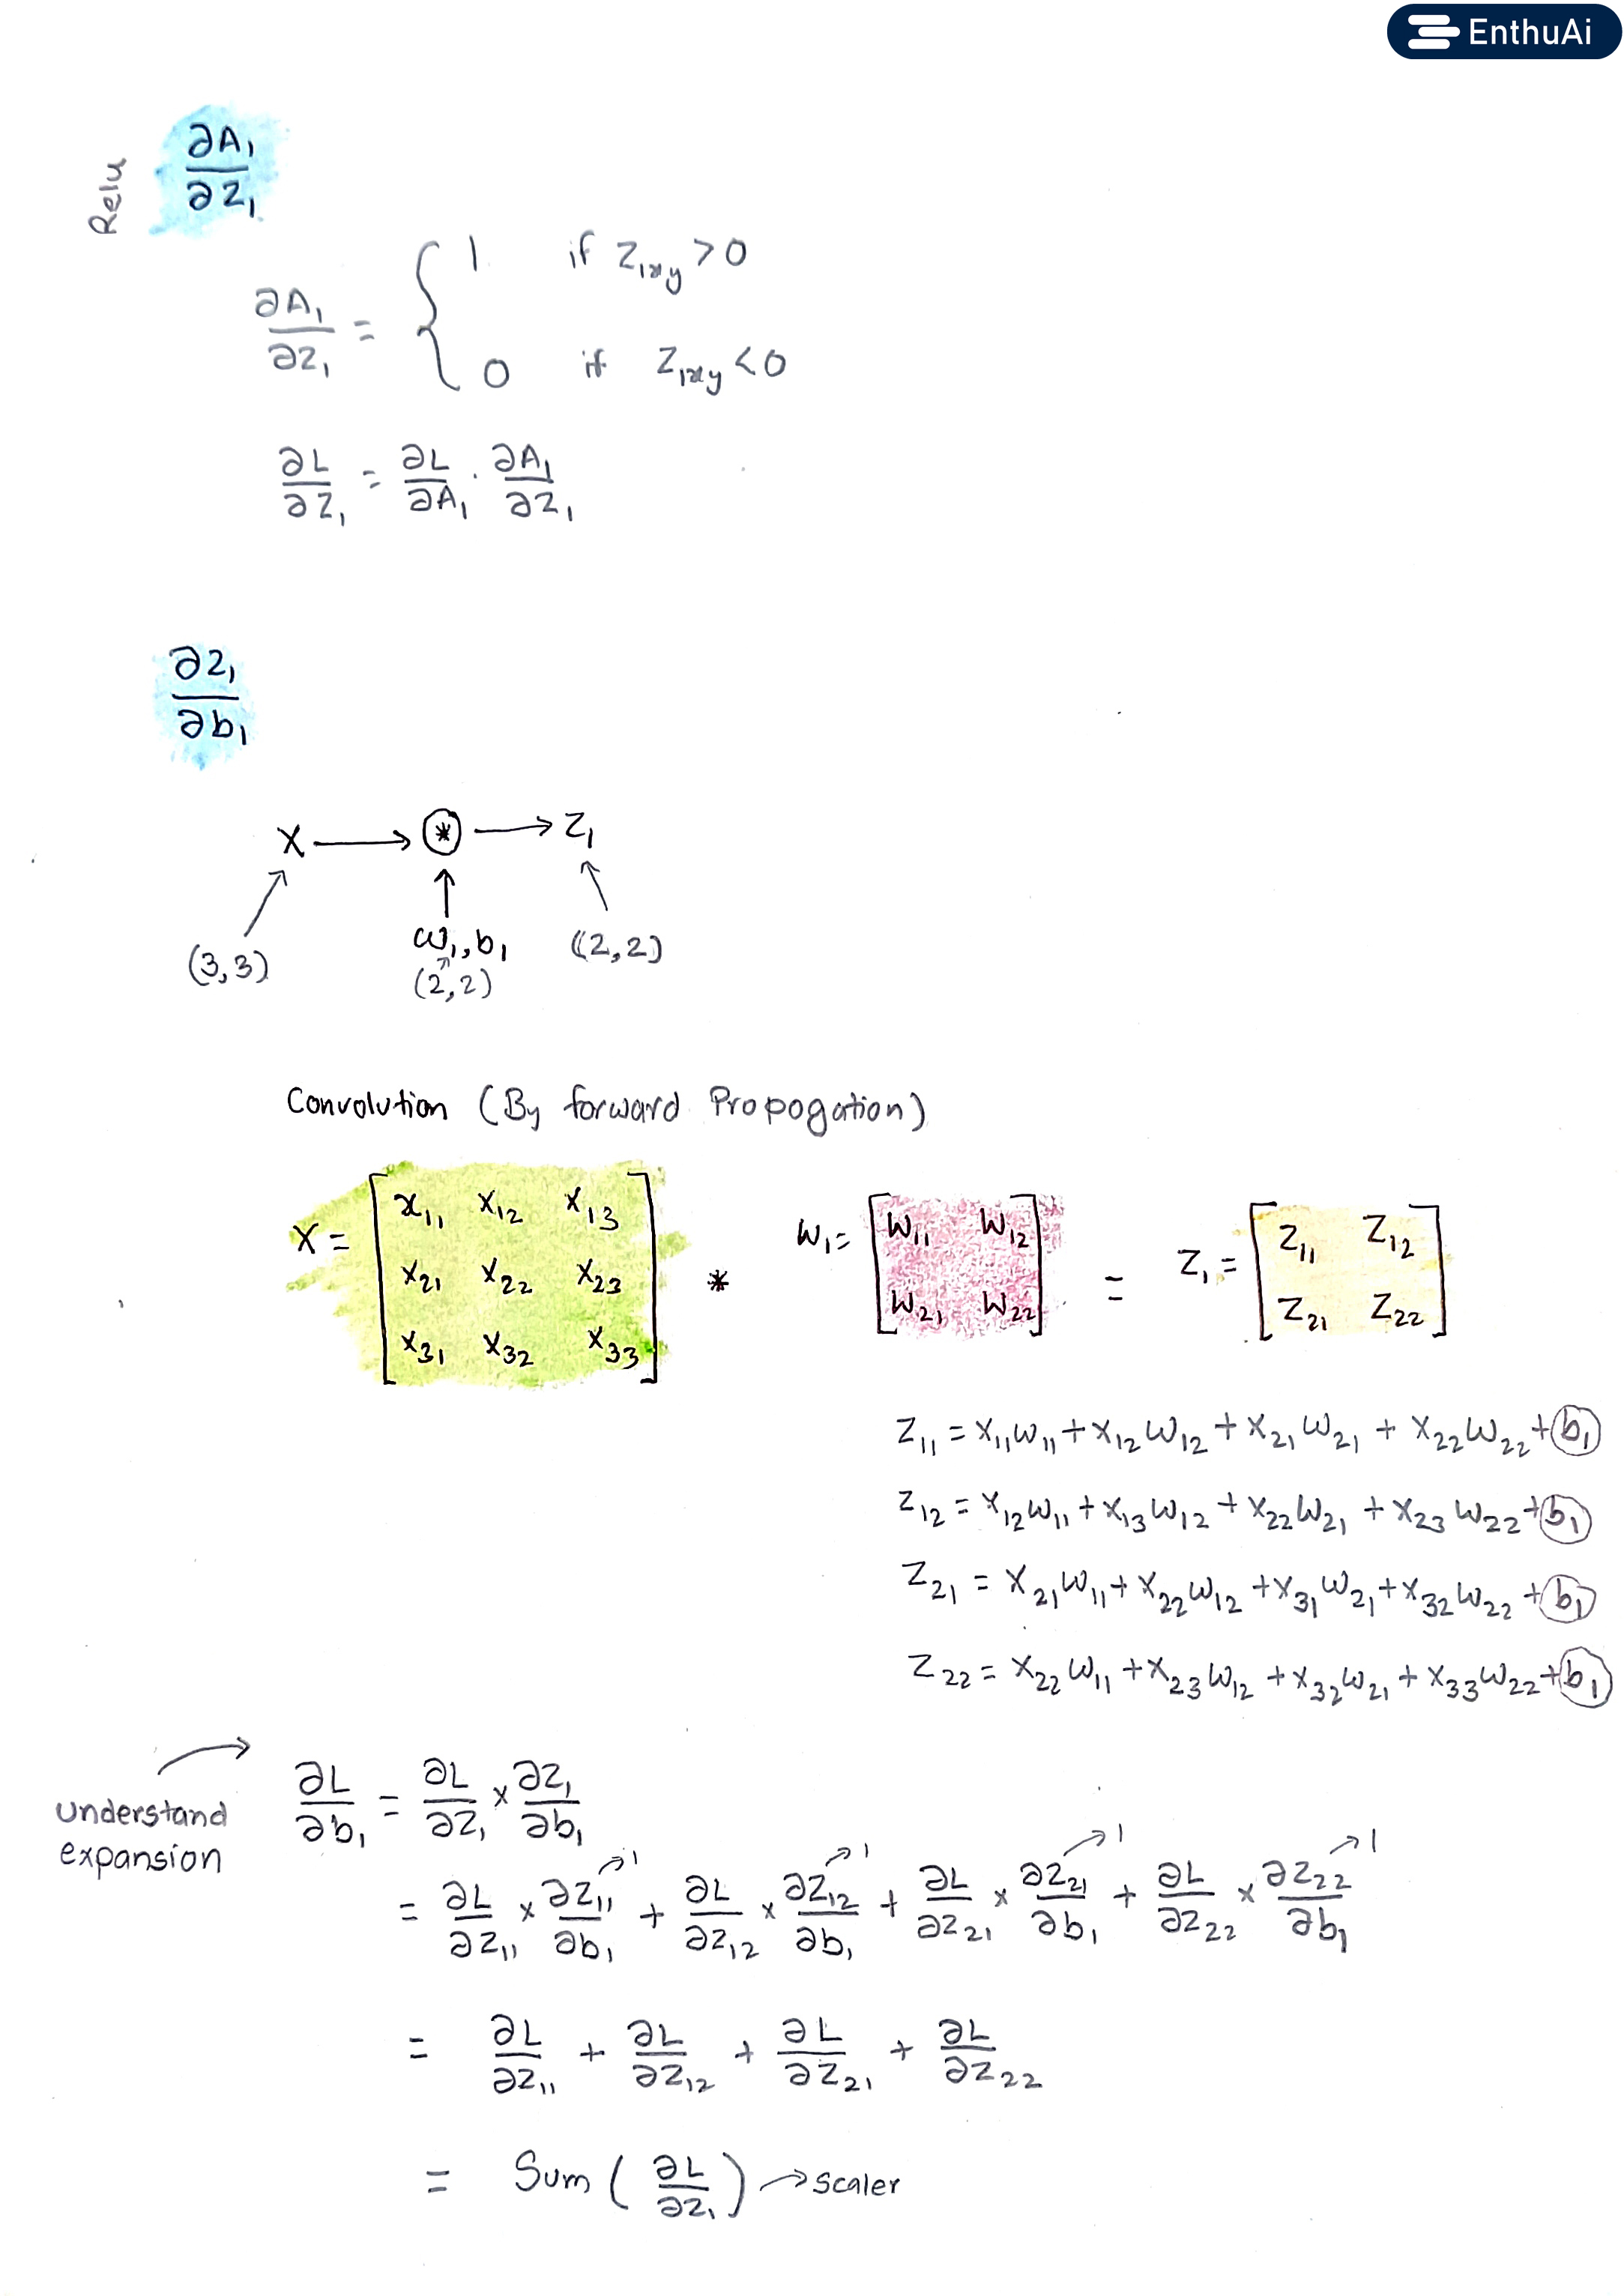 EnthuAi
Relu
∂A₁/∂Z₁
∂A₁/∂Z₁ = { 1 if Z₁ₓy > 0
0 if Z₁ₓy < 0
∂L/∂Z₁ = ∂L/∂A₁ · ∂A₁/∂Z₁
∂Z₁/∂b₁
X → ⊛ → Z₁
(3,3) W₁,b₁ (2,2)
(2,2)
Convolution (By forward Propogation)
X = [x₁₁ x₁₂ x₁₃
x₂₁ x₂₂ x₂₃
x₃₁ x₃₂ x₃₃] * W₁ = [W₁₁ W₁₂
W₂₁ W₂₂] = Z₁ = [Z₁₁ Z₁₂
Z₂₁ Z₂₂]
Z₁₁ = x₁₁w₁₁ + x₁₂w₁₂ + x₂₁w₂₁ + x₂₂w₂₂ + b₁
Z₁₂ = x₁₂w₁₁ + x₁₃w₁₂ + x₂₂w₂₁ + x₂₃w₂₂ + b₁
Z₂₁ = x₂₁w₁₁ + x₂₂w₁₂ + x₃₁w₂₁ + x₃₂w₂₂ + b₁
Z₂₂ = x₂₂w₁₁ + x₂₃w₁₂ + x₃₂w₂₁ + x₃₃w₂₂ + b₁
understand
expansion
∂L/∂b₁ = ∂L/∂Z₁ × ∂Z₁/∂b₁
= ∂L/∂Z₁₁ × ∂Z₁₁/∂b₁ → 1 + ∂L/∂Z₁₂ × ∂Z₁₂/∂b₁ → 1 + ∂L/∂Z₂₁ × ∂Z₂₁/∂b₁ → 1 + ∂L/∂Z₂₂ × ∂Z₂₂/∂b₁ → 1
= ∂L/∂Z₁₁ + ∂L/∂Z₁₂ + ∂L/∂Z₂₁ + ∂L/∂Z₂₂
= Sum (∂L/∂Z₁) → scaler